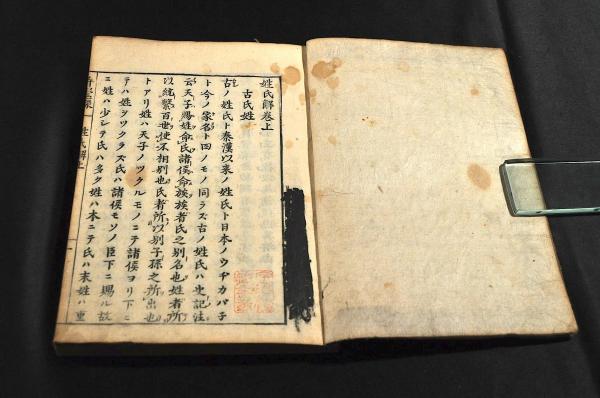 姓氏解巻上
古氏姓
古ノ姓氏ト秦漢以来ノ姓氏ト日本ノウヂカバ子
ト今ノ家名ト四ノモノ同ラズ古ノ姓氏ハ史記注
云天子賜姓命氏諸侯命族族者氏之別名也姓者所
以統繋百世使不相別也氏者所以別子孫之所出也
トアリ姓ハ天子ノツクルモノニテ諸侯ヨリ下ニ
テハ姓ヲツクラズ氏ハ諸侯モソノ臣下ニ賜ル故
ニ姓ハ少シテ氏ハ多ク姓ハ本ニテ氏ハ末姓ハ重
姓氏解上